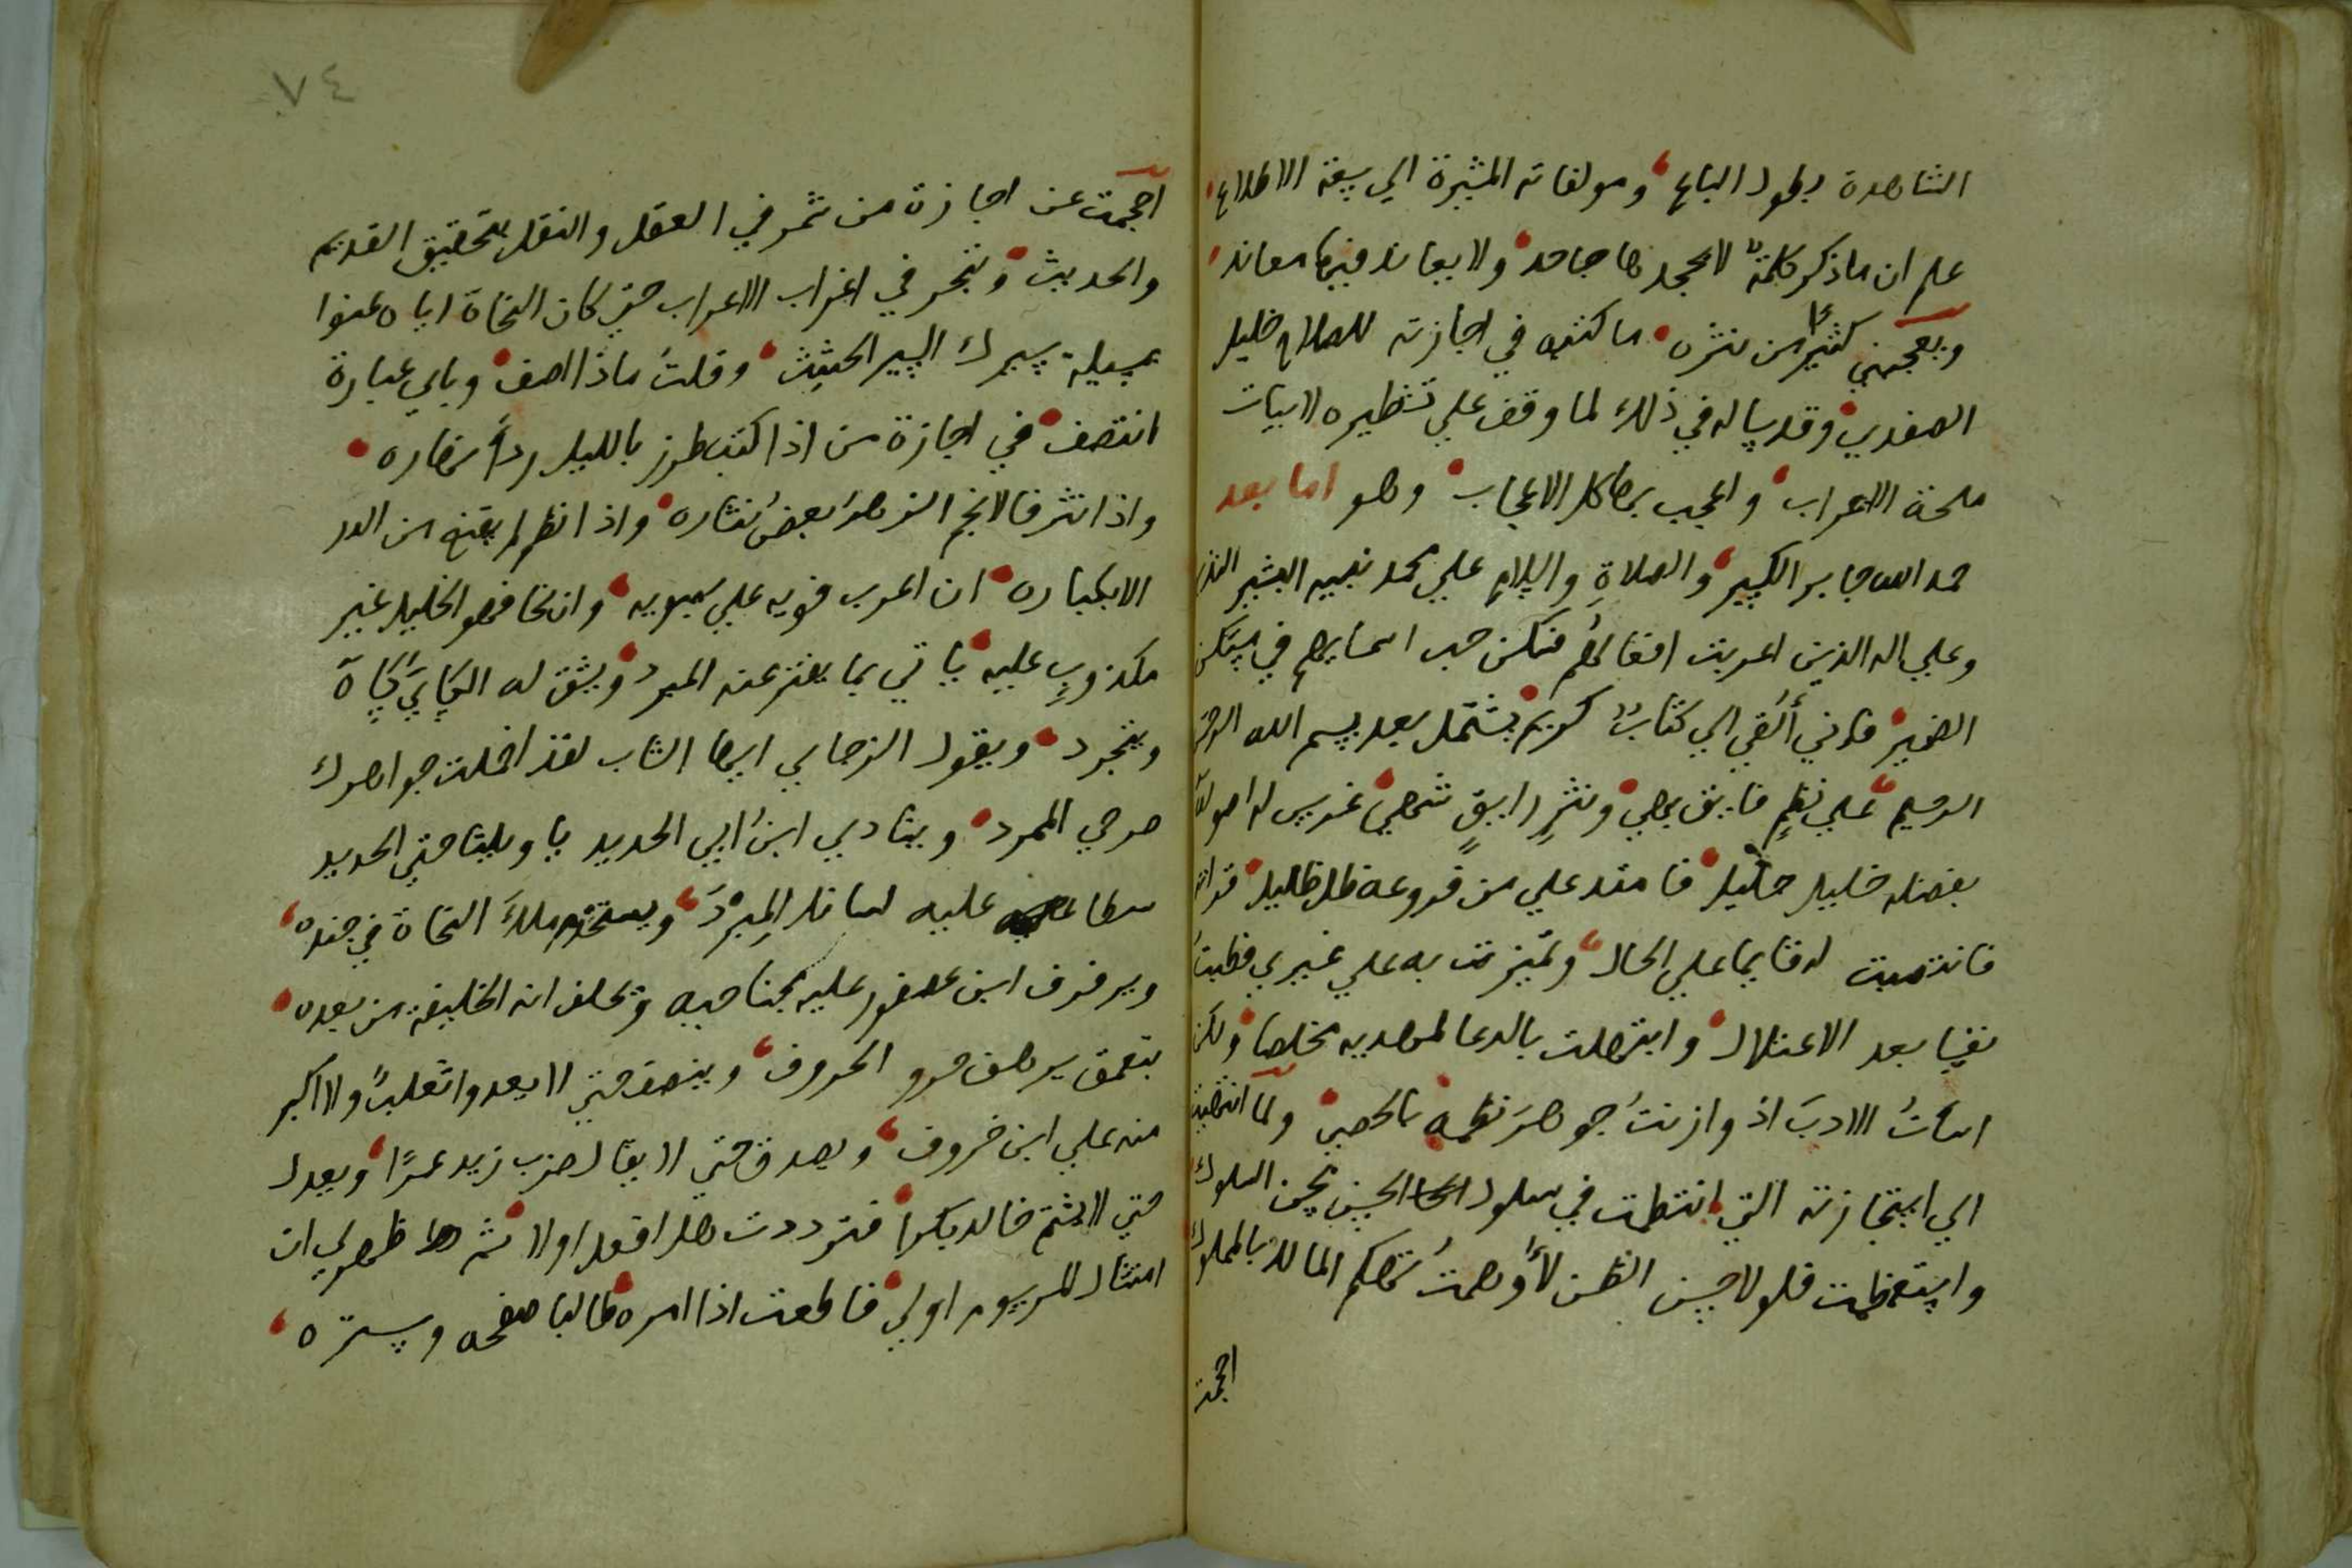 الشاهدة بطول الباع، ومولفاته المشيرة الي سعة الاطلاع،
علم ان ماذكر كلمة لا يجحدها جاحد، ولا يعاند فيها معاند،
ويعجبني كثيرًا من نثره ما كتبه في اجازته للصلاح خليل
الصفدي، وقد ساله في ذلك لما وقف علي تشطيره لابيات
ملحة الاعراب، واعجب بها كل الاعجاب، وهو اما بعد
حمد الله جابر الكسير، والصلاةِ والسلام علي محمد نبيه البشير النذير
وعلي اله الذين اعربت افعالهم فسكن حب اسمايهم في مستكن
الضمير، فاني أُلقي الي كتابٌ كريم، يشتمل بعد بسم الله الرحمن
الرحيم، علي نظمٍ فايق بهي، ونثرٍ رايقٍ شهي، غرس لي اصوله
بفضله خليل جليل، فامتد علي من فروعه ظل ظليل،
فانتصبت له قايما علي الحال، وتميزت به علي غيري فطبتُ
نفسا بعد الاعتلال، وابتهلت بالدعا لمهديه مخلصا، ولكن
اسأتُ الادبَ اذ وازنتُ جوهرَ نظمه بالحصي، ولما انتهيت
الي استجازته التي انتظمت في سلوك الحسن بحسن السلوك
واستعظمت فلولا حسن الظن لأوهمتُ تهكم المالك بالمملوك
احجمت
٧٤
احجمت عن اجازة من تمهر في العقل والنقل بتحقيق القديم
والحديث، وتبحر في اغراب الاعراب حتي كان النحاة اياه عنوا
بسيلة سيرك السير الحثيث، وقلتُ ماذا اصف، وباي عبارة
انتصف، في اجازة من اذا كتب طرز بالليل رداً نهاره،
واذا نثر فالانجم الزهر بعضُ نثاره، واذا نظم لم يقنع من الدر
الا بكباره، ان اعرب فويه علي سيبويه، وان نحا فهو الخليل غير
مكذوبٍ عليه، ياتي بما يفتر عنه المبرد، ويشق له الكسايُ كساه
ويتجرد، ويقول الزجاجي ايها الشاب لقد اخملت جواهرك
صرحي الممرد، وينادي ابن ابي الحديد يا ويلتا حتي الحديد
سطا عليه لسانك المبرد، ويستخدم ملك النحاة في جنده،
ويرفرف ابن عصفور عليه بجناحيه ويحلف انه الخليفة من بعده،
يتعمق يرهف حرو الحروف، وينصف حتي لا يعدوا ثعلب ولا اكبر
منه علي ابن خروف، ويصدق حتي لا يقال ضرب زيد عمرًا، ويعدل
حتي لا يشتم خالد بكرا، فترددت هل افعل اولا ثم ظهر لي ان
امتثال المرسوم اولي، فاطعت اذا امره طالبا صفحه وستره،